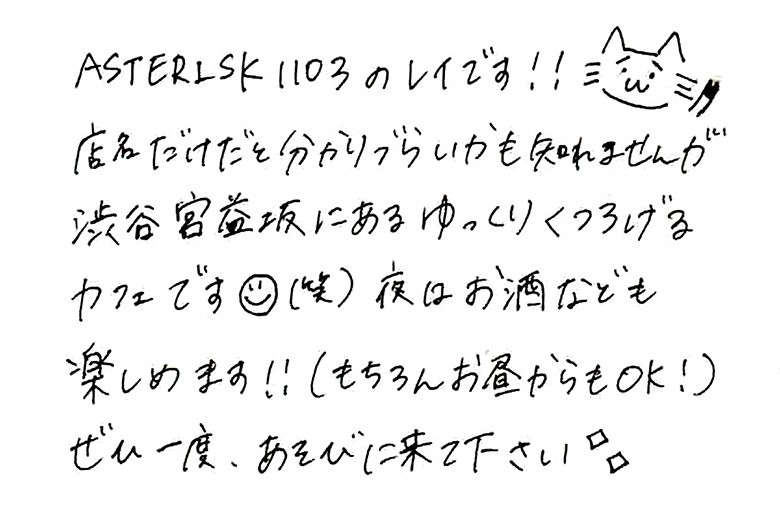 ASTERISK 1103のレイです!!
店名だけだと分かりづらいかも知れませんが
渋谷宮益坂にあるゆっくりくつろげる
カフェです(笑)夜はお酒なども
楽しめます!!(もちろんお昼からもOK!)
ぜひ一度、あそびに来て下さい